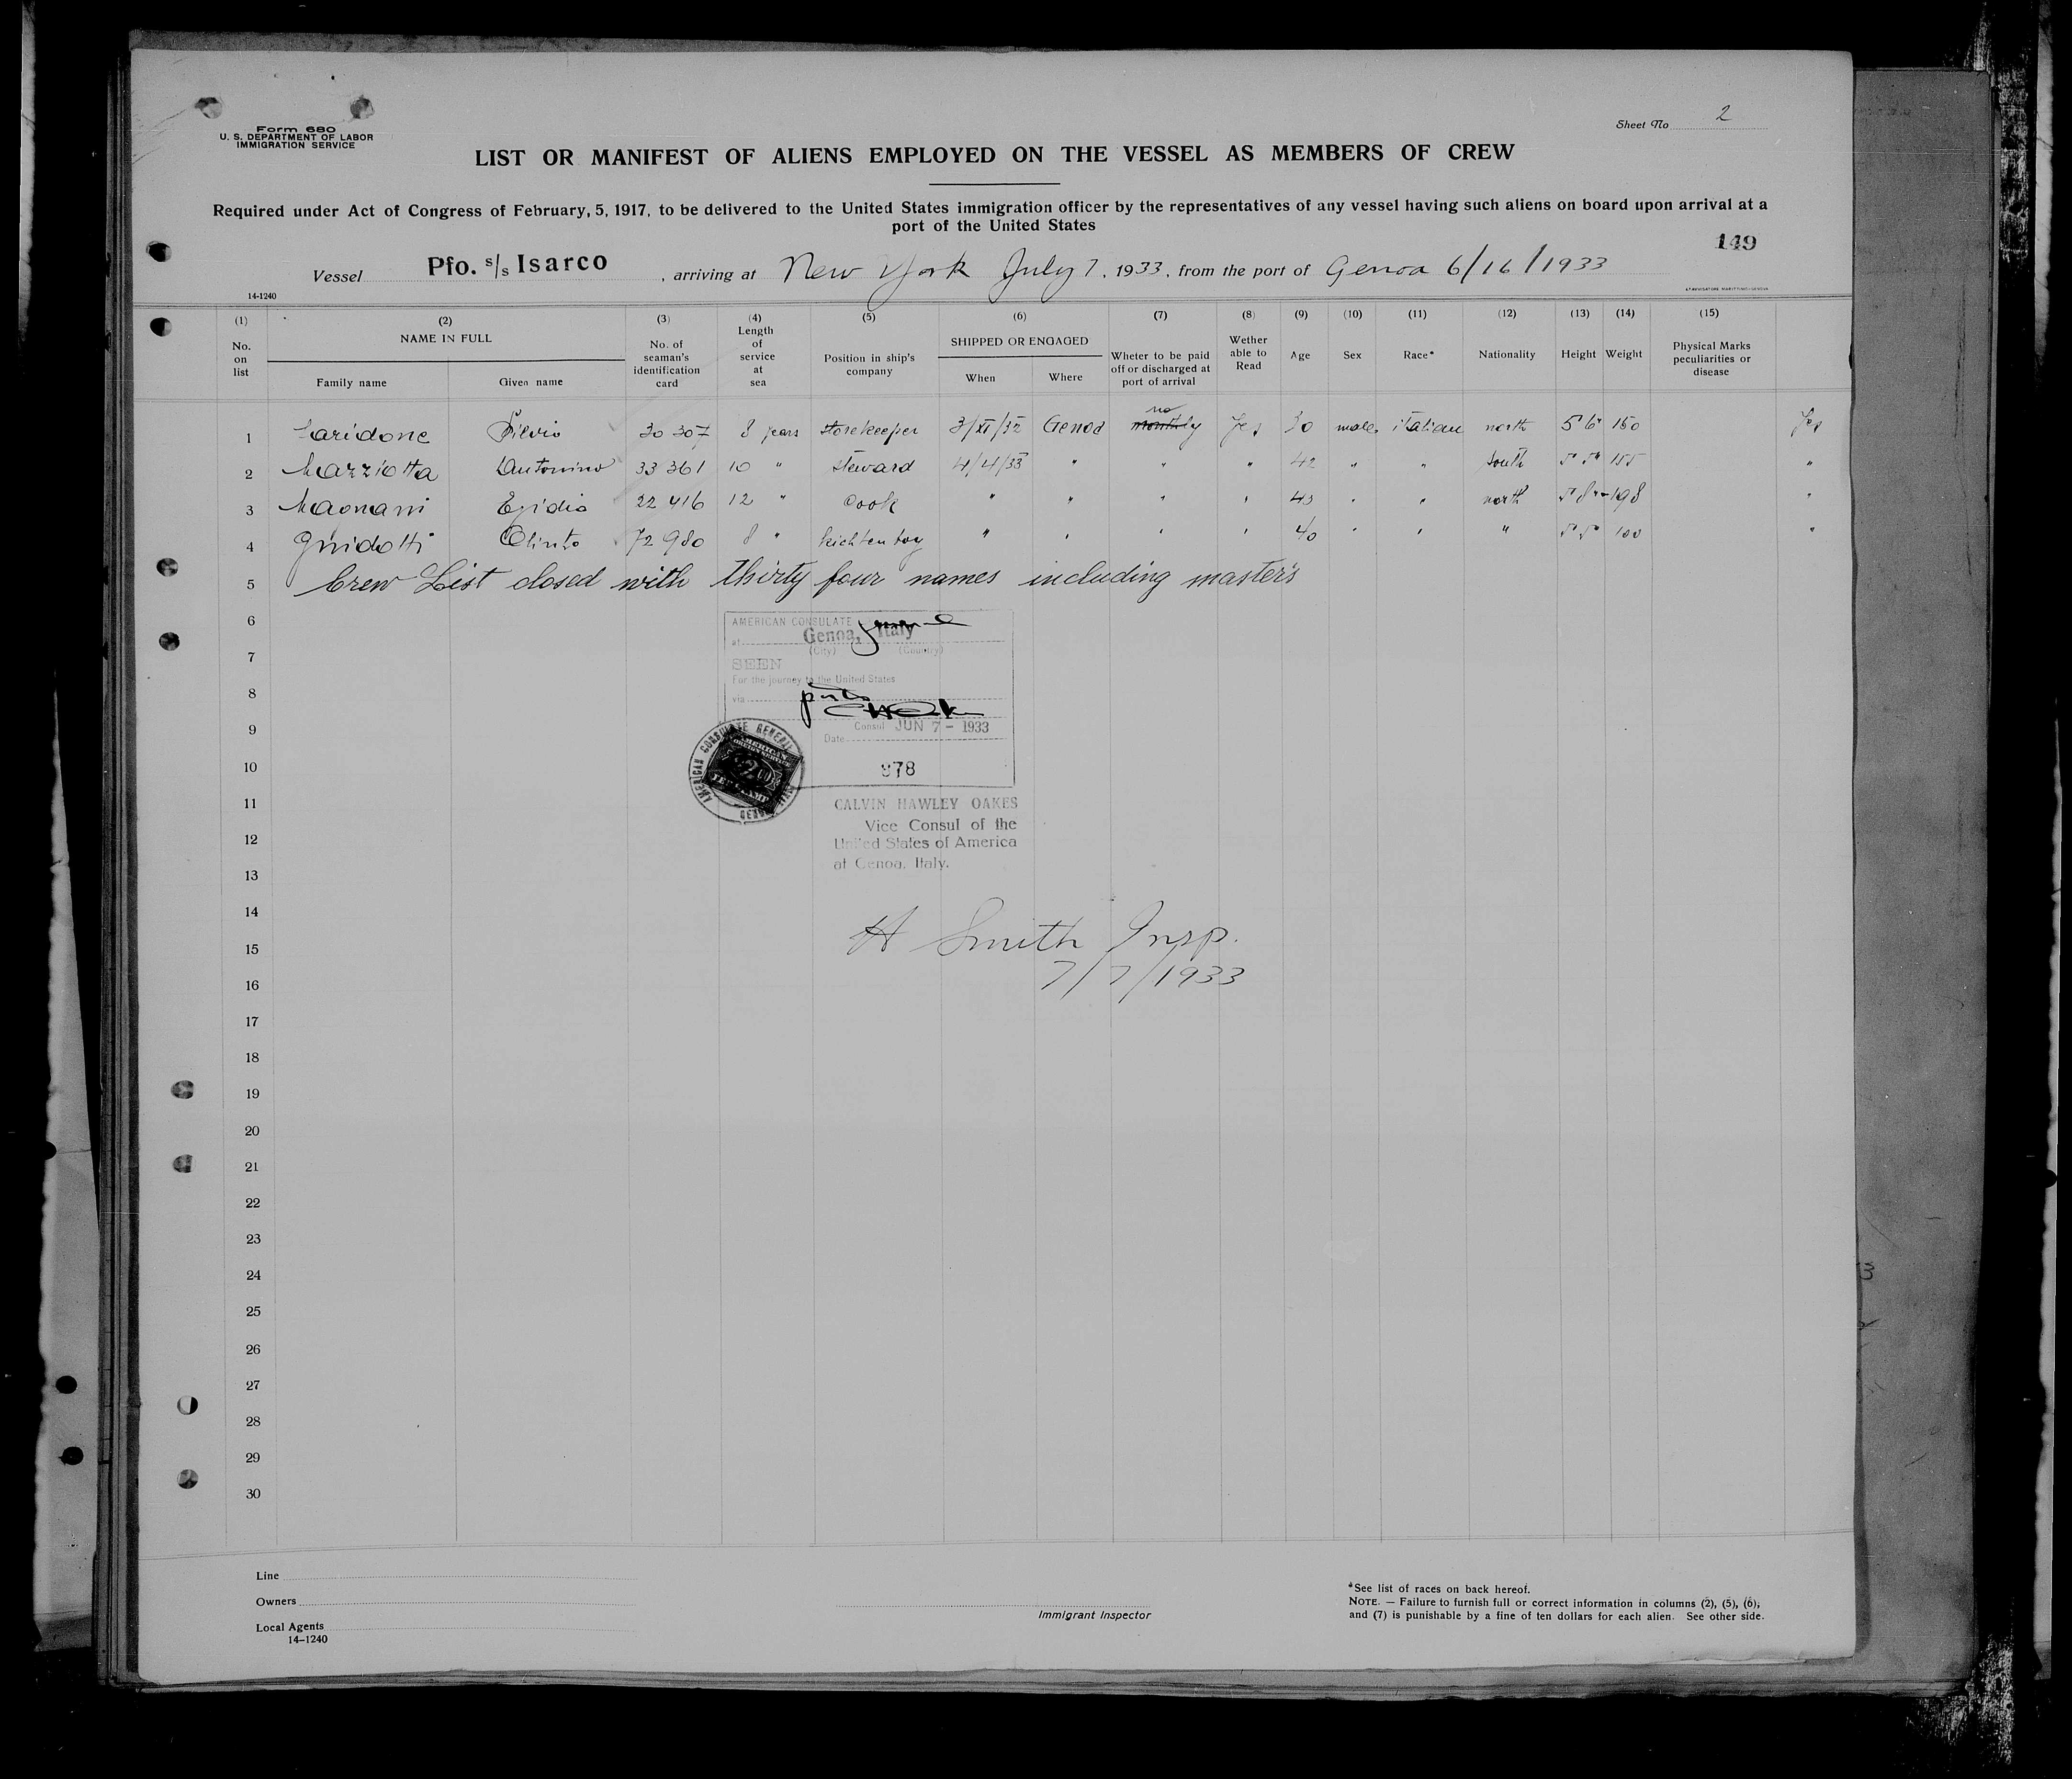 Form 680
U. S. DEPARTMENT OF LABOR
IMMIGRATION SERVICE
Sheet No 2
LIST OR MANIFEST OF ALIENS EMPLOYED ON THE VESSEL AS MEMBERS OF CREW
Required under Act of Congress of February, 5, 1917, to be delivered to the United States immigration officer by the representatives of any vessel having such aliens on board upon arrival at a
port of the United States
149
Vessel Pfo. s/s Isarco, arriving at New York July 7, 1933, from the port of Genoa 6/16/1933
14-1240
(1) (2) (3) (4) (5) (6) (7) (8) (9) (10) (11) (12) (13) (14) (15)
No. on list NAME IN FULL Family name Given name No. of seaman's identification card Length of service at sea Position in ship's company SHIPPED OR ENGAGED When Where Wheter to be paid off or discharged at port of arrival Wether able to Read Age Sex Race* Nationality Height Weight Physical Marks peculiarities or disease
no
1 Silvio 30 307 8 years storekeeper 3/XI/32 Genoa monthly Yes 30 male italian north 5 6" 150 Yes
2 Mazziotta Antonino 33 361 10 " steward 4/4/33 " " " 42 " " South 5 5" 155 "
3 Magnani Egidio 22 416 12 " cook " " " " " " north 5 8" 198 "
4 Guidotti Olinto 72 980 8 " kichten boy " " " " 40 " " " 5 5" 100 "
5 Crew List closed with thirty four names including master's
6
AMERICAN CONSULATE
at Genoa, Italy
(City) (Country)
7
SEEN
For the journey to the United States
8
via
9
Consul JUN 7 - 1933
Date
AMERICAN CONSULATE GENERAL
AMERICAN FOREIGN SERVICE
10
978
11
CALVIN HAWLEY OAKES
Vice Consul of the
12
United States of America
at Genoa, Italy.
13
14
H Smith Insp.
15
7/7/1933
16
17
18
19
20
21
22
23
24
25
26
27
28
29
30
Line
Owners
Local Agents
14-1240
Immigrant Inspector
*See list of races on back hereof.
NOTE. — Failure to furnish full or correct information in columns (2), (5), (6),
and (7) is punishable by a fine of ten dollars for each alien. See other side.